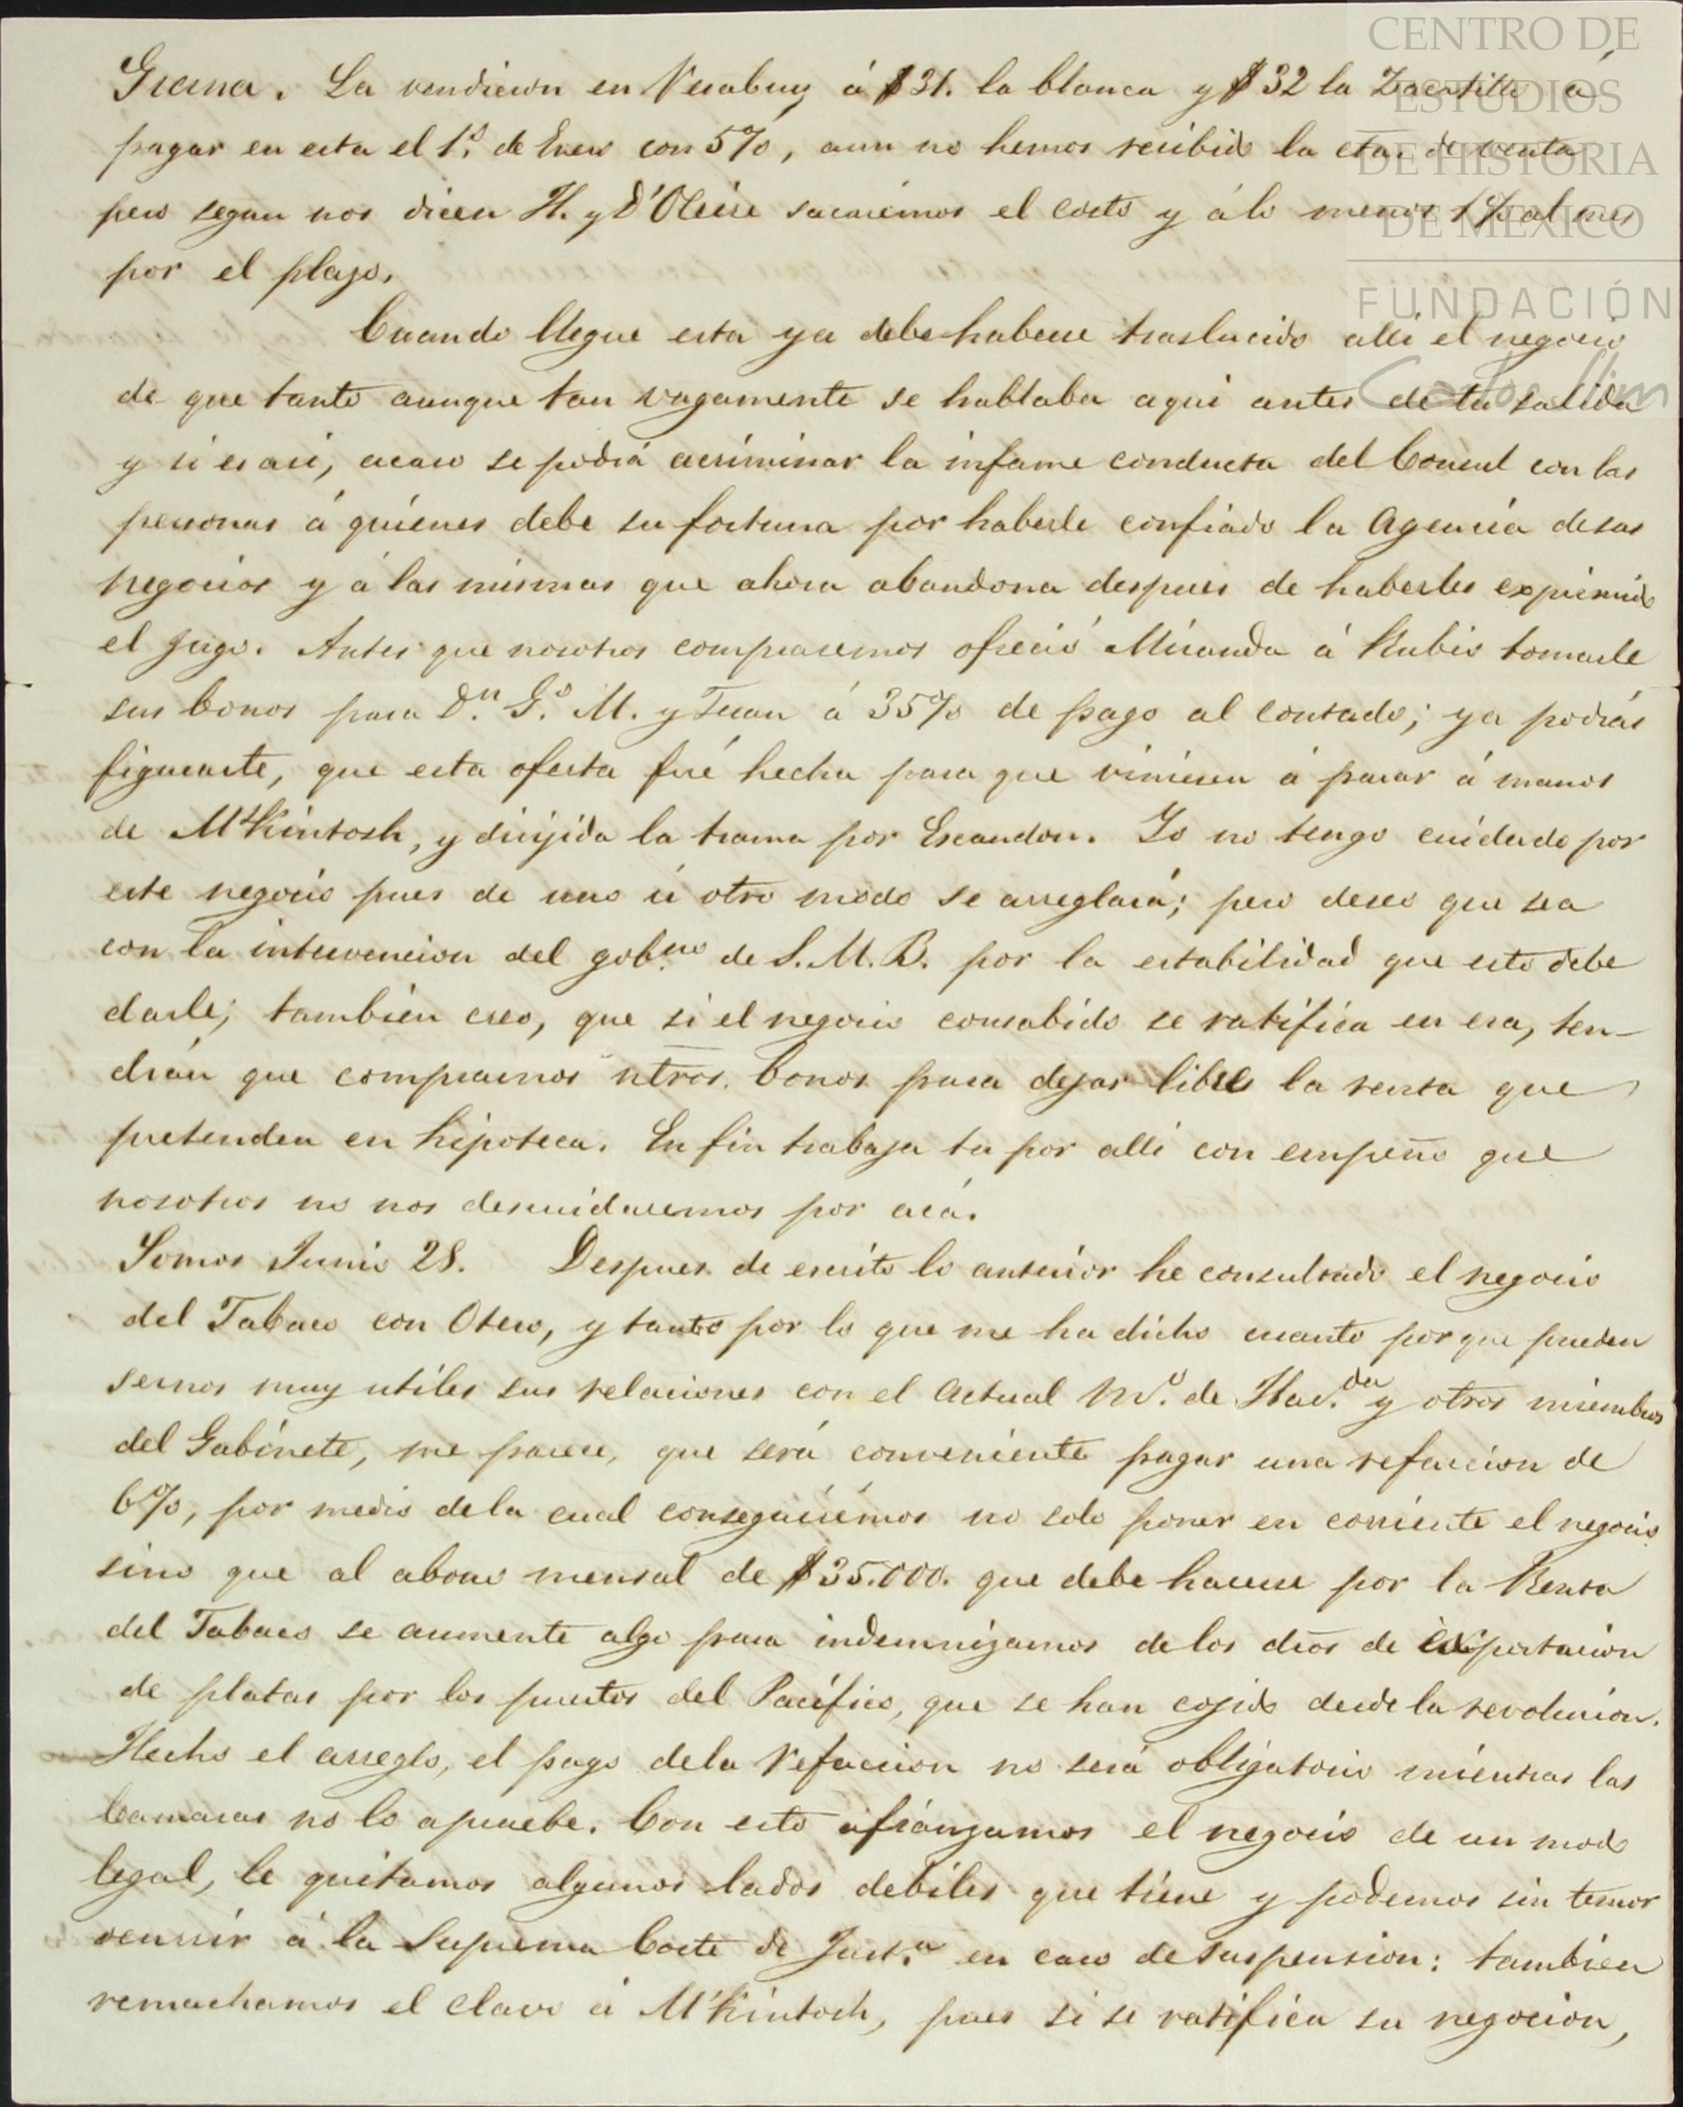 Grana. La vendieron en Veracruz á $31. la blanca y $32 la Zacatilla á
pagar en esta el 1º. de Enero con 5%, aun no hemos recibido la cta. de venta
pero segun nos dicen H. y D'Oleire sacaremos el costo y á lo menos 1% al mes
por el plazo.
Cuando llegue esta ya debe haberse traslucido alli el negocio
de que tanto aunque tan vagamente se hablaba aqui antes de tu salida
y si es asi, acaso se podrá acriminar la infame conducta del Consul con las
personas á quienes debe su fortuna por haberle confiado la Agencia de sus
negocios y á las mismas que ahora abandona despues de haberles exprimido
el jugo. Antes que nosotros comprasemos ofreció Miranda á Rubio tomarle
sus bonos para Dn. Go. M. y Teran á 35% de pago al contado; ya podrás
figurarte, que esta oferta fué hecha para que viniesen á parar á manos
de McKintosh, y dirijida la trama por Escandon. Yo no tengo cuidado por
este negocio pues de uno ú otro modo se arreglará; pero deseo que sea
con la intervencion del gobno. de S. M. B. por la estabilidad que esto debe
darle; tambien creo, que si el negocio consabido se ratifica en esa, ten-
drán que comprarnos ntros. bonos para dejar libre la renta que
pretenden en hipoteca. En fin trabaja tu por alli con empeño que
nosotros no nos descuidaremos por acá.
Somos Junio 28. Despues de escrito lo anterior he consultado el negocio
del Tabaco con Otero, y tanto por lo que me ha dicho cuanto porque pueden
sernos muy utiles sus relaciones con el Actual Mo. de Hacda. y otros miembros
del Gabinete, me parece, que será conveniente pagar una refaccion de
6%, por medio de la cual conseguirémos no solo poner en corriente el negocio
sino que al abono mensual de $35.000. que debe hacerse por la Renta
del Tabaco se aumente algo para indemnizarnos de los dros de exportacion
de platas por los puertos del Pacífico, que se han cojido desde la revolucion.
Hecho el arreglo, el pago de la refaccion no será obligatorio mientras las
Camaras no lo apruebe. Con esto afianzamos el negocio de un modo
legal, le quitamos algunos lados debiles que tiene y podemos sin temor
ocurrir á la Suprema Corte de Justa. en caso de suspension: tambien
remachamos el clavo á McKintosh, pues si se ratifica su negocion,
CENTRO DE
ESTUDIOS
DE HISTORIA
DE MEXICO
FUNDACIÓN
Carlos Slim